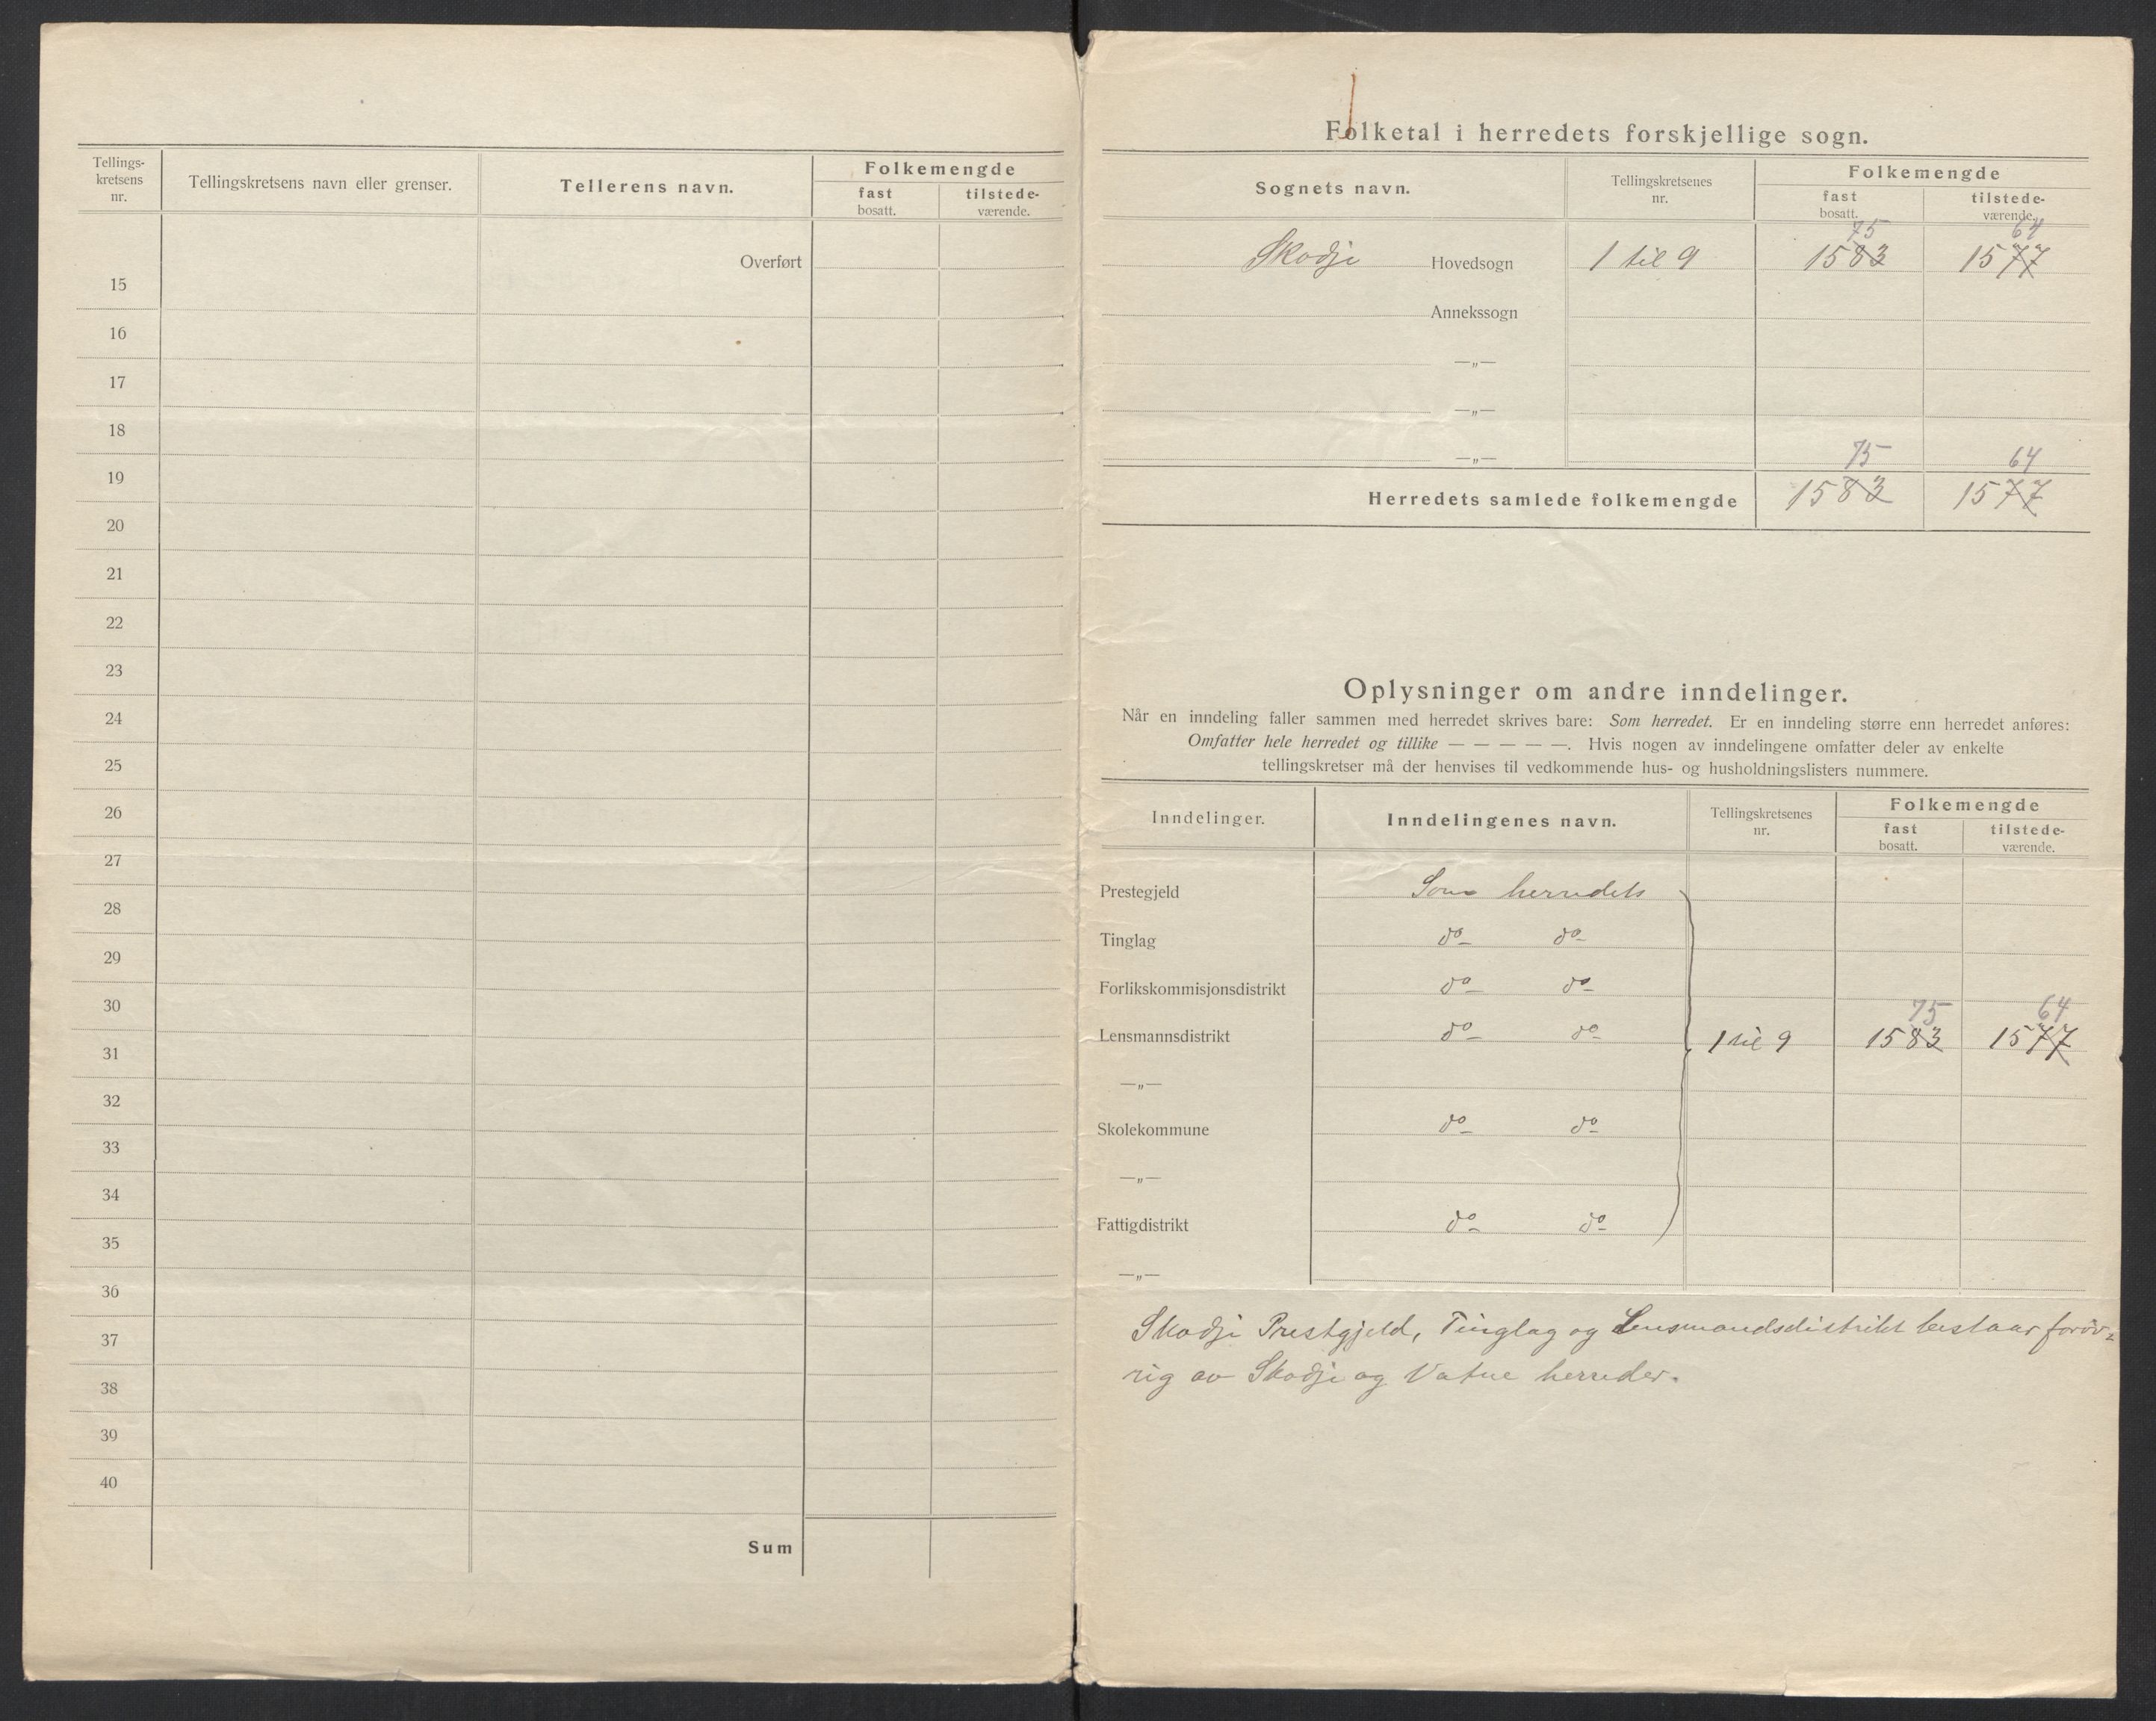 Tellings-
kretsens
nr.
Tellingskretsens navn eller grenser.
Tellerens navn.
Folkemengde
fast
bosatt.
tilstede-
værende.
Overført
15
16
17
18
19
20
21
22
23
24
25
26
27
28
29
30
31
32
33
34
35
36
37
38
39
40
Sum
Folketal i herredets forskjellige sogn.
Sognets navn.
Tellingskretsenes
nr.
Folkemengde
fast
bosatt.
tilstede-
værende.
75 64
Skodje Hovedsogn 1 til 9 1583 1577
Annekssogn
—„—
—„—
—„— 75 64
Herredets samlede folkemengde 1583 1577
Oplysninger om andre inndelinger.
Når en inndeling faller sammen med herredet skrives bare: Som herredet. Er en inndeling større enn herredet anføres:
Omfatter hele herredet og tillike — — — — —. Hvis nogen av inndelingene omfatter deler av enkelte
tellingskretser må der henvises til vedkommende hus- og husholdningslisters nummere.
Inndelinger.
Inndelingenes navn.
Tellingskretsenes
nr.
Folkemengde
fast
bosatt.
tilstede-
værende.
Prestegjeld Som herredets
Tinglag do do
Forlikskommisjonsdistrikt do do
75 64
Lensmannsdistrikt do do 1 til 9 1583 1577
—„—
Skolekommune do do
—„—
Fattigdistrikt do do
—„—
Skodje Prestgjeld, Tinglag og Lensmandsdistrikt bestaar forøv=
rig av Skodje og Vatne herreder.